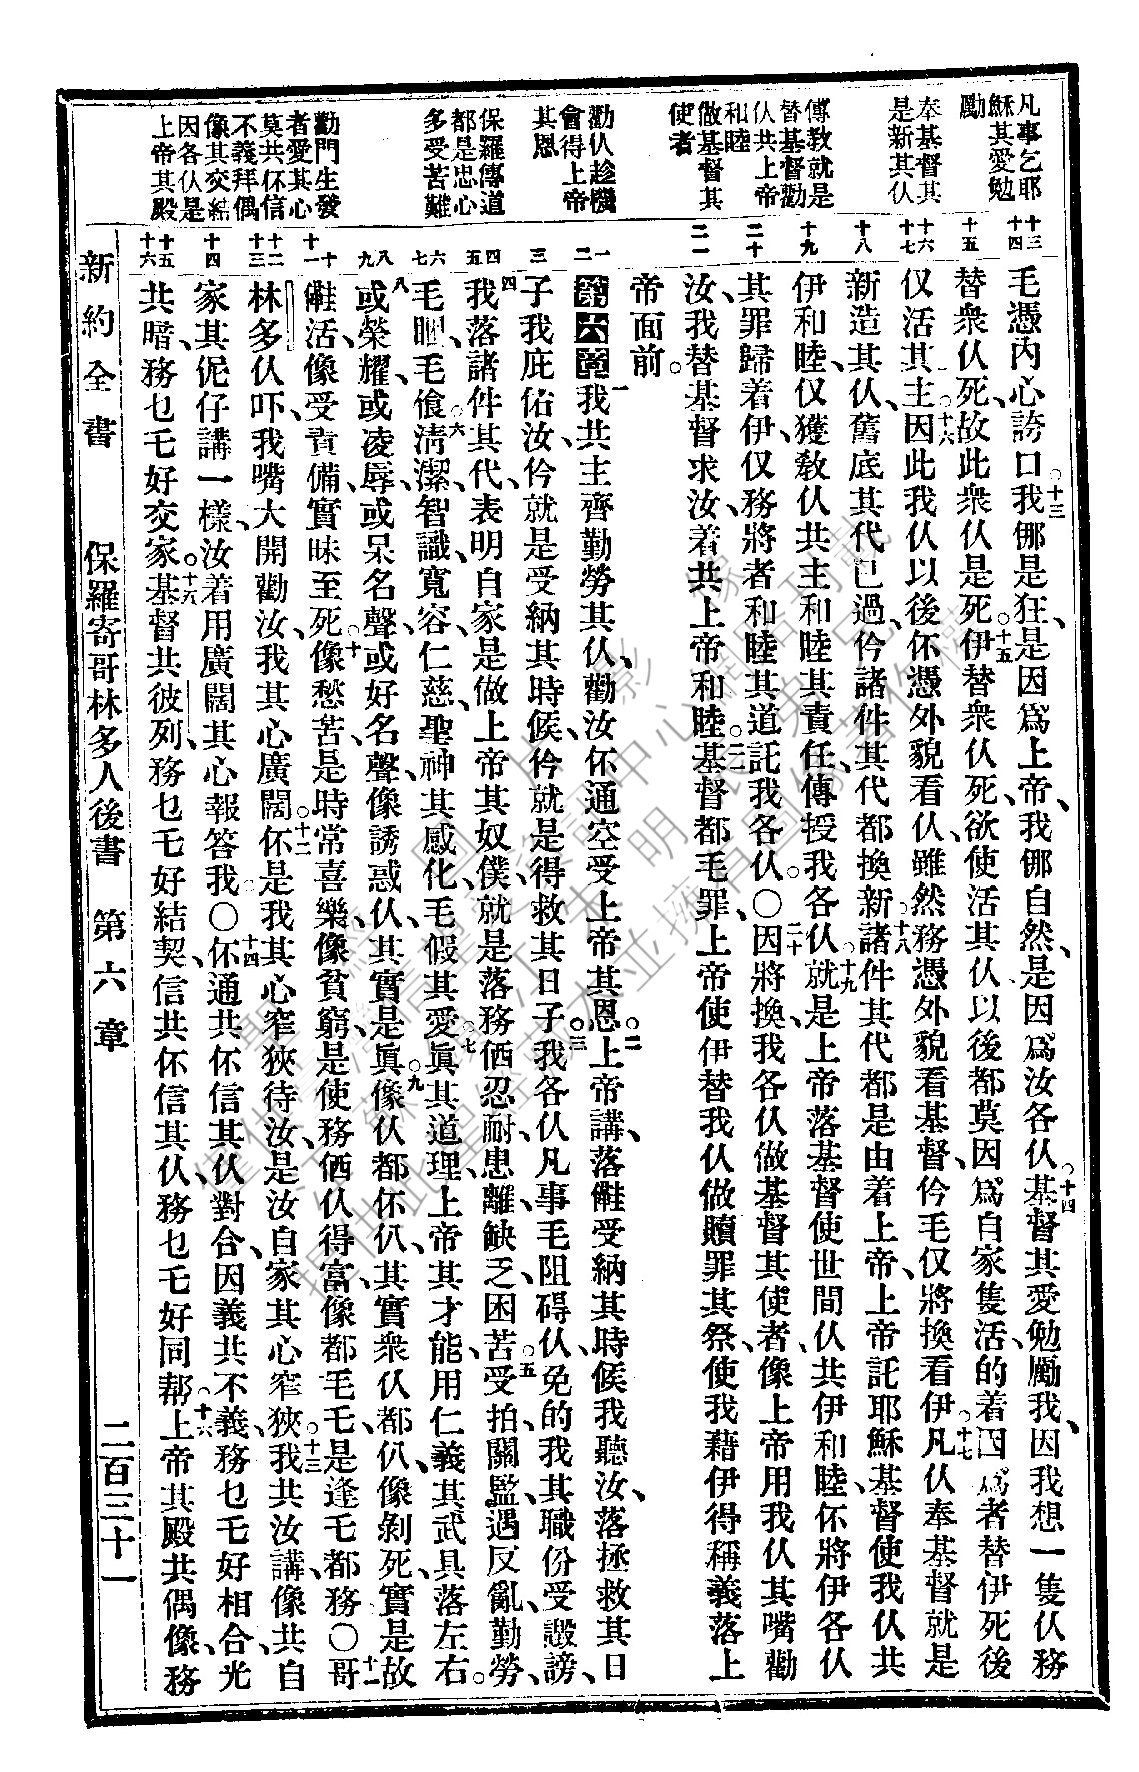 凡事乞耶
穌其愛勉
勵
奉基督其
是新其仈
傳敎就是
替基督勸
仈共上帝
和睦
做基督其
使者
勸仈趁機
會得上帝
其恩
保羅傳道
都是忠心
多受苦難
勸門生發
者愛其心
莫共伓信
不義拜偶
像其交結
因各仈是
上帝其殿
十三
十四
十五
十六
十七
十八
十九
二十
二一
一
二
三
四
五
六
七
八
九
十
十一
十二
十三
十四
十五
十六
毛憑內心誇口。十三我㑚是狂、是因爲上帝、我㑚自然、是因爲汝各仈。十四基督其愛勉勵我、因我想一隻仈務
替衆仈死、故此衆仈是死。十五伊替衆仈死、欲使活其仈以後都莫因爲自家隻活的着因爲者替伊死後
仅活其主。十六因此我仈以後伓憑外貌看仈、雖然務憑外貌看基督、仱毛仅將換看伊。十七凡仈奉基督就是
新造其仈、舊底其代已過、仱諸件其代都換新。十八諸件其代都是由着上帝、上帝託耶穌基督使我仈共
伊和睦、仅獲敎仈共主和睦其責任、傳授我各仈。十九就是上帝落基督使世間仈共伊和睦、伓將伊各仈
其罪歸着伊、仅務將者和睦其道託我各仈。〇二十因將換我各仈做基督其使者、像上帝用我仈其嘴勸
汝、我替基督求汝着共上帝和睦。二一基督都毛罪、上帝使伊替我仈做贖罪其祭、使我藉伊得稱義落上
帝面前。
第六章一我共主齊勤勞其仈、勸汝伓通空受上帝其恩。二上帝講、落㒰受納其時候我聽汝、落拯救其日
子我庇佑汝、仱就是受納其時候、仱就是得救其日子。三我各仈凡事毛阻碍仈、免的我其職份受譭謗、
四我落諸件其代、表明自家是做上帝其奴僕、就是落務㑑忍耐、患難、缺乏、困苦、五受拍、關監、遇反亂、勤勞、
毛睏、毛飡、六淸潔、智識、寬容、仁慈、聖神其感化、毛假其愛、七眞其道理、上帝其才能、用仁義其武具落左右。
八或榮耀、或凌辱、或呆名聲、或好名聲、像誘惑仈、其實是眞、九像仈都伓仈、其實衆仈都仈、像剝死、實是故
㒰活、像受責備、實昧至死、十像愁苦、是時常喜樂、像貧窮、是使務㑑仈得富、像都毛乇、是逢乇都務。〇十一哥
林多仈吓、我嘴大開勸汝、我其心廣闊、十二伓是我其心窄狹待汝、是汝自家其心窄狹。十三我共汝講、像共自
家其伲仔講一樣、汝着用廣闊其心報答我。〇十四伓通共伓信其仈對合、因義共不義、務乜乇好相合、光
共暗、務乜乇好交家、十五基督共彼列、務乜乇好結契、信共伓信其仈、務乜乇好同帮、十六上帝其殿共偶像、務
新約全書　保羅寄哥林多人後書　第六章　二百三十一